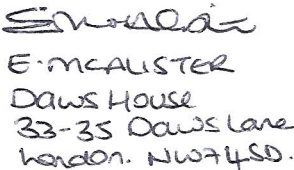 E. MCALISTER
DAWS HOUSE
33-35 DAWS Lane
London. NW74SD.